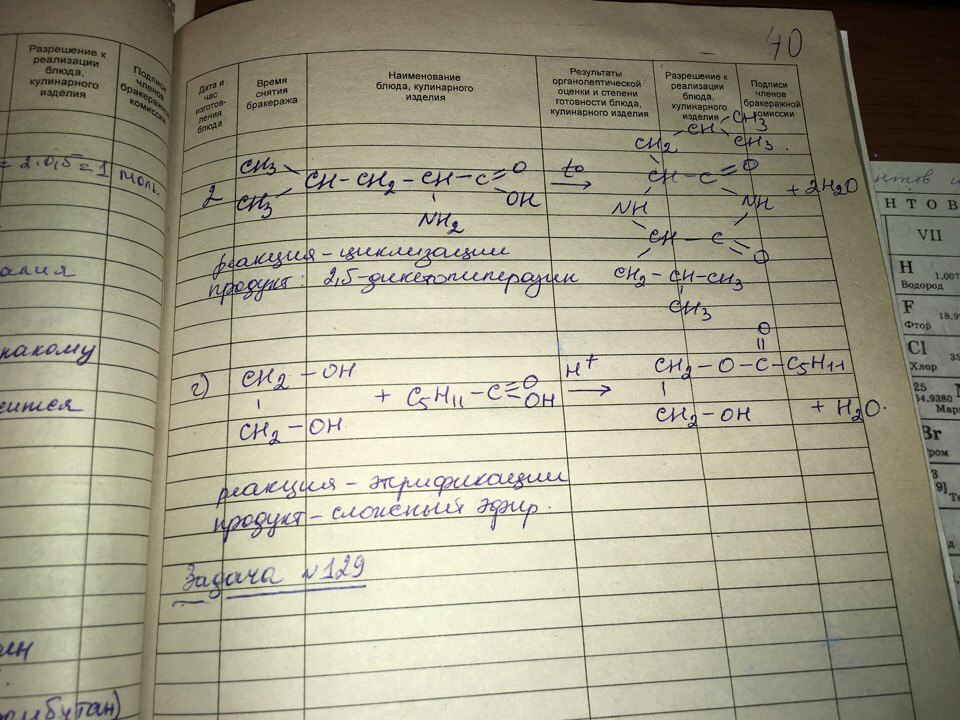 40
Разрешение к реализации блюда, кулинарного изделия
Подписи членов бракеражной комиссии
= 2·0,5 = 1 моль.
Дата и час изготов-ления блюда
Время снятия бракеража
Наименование блюда, кулинарного изделия
Результаты органолептической оценки и степени готовности блюда, кулинарного изделия
Разрешение к реализации блюда, кулинарного изделия
Подписи членов бракеражной комиссии
CH2 - CH CH3 CH3.
2 CH3 CH3 CH-CH2-CH-C=O OH t° → CH-C=O + 2H2O
NH2
NH NH
CH-C=O
CH2-CH-CH3
CH3
реакция - циклизации
продукт: 2,5-дикетопиперазин
O
г) CH2-OH + C5H11-C=O OH H+ → CH2-O-C-C5H11
CH2-OH. CH2-OH + H2O.
реакция - этрификации
продукт - сложный эфир.
Задача №129
НТОВ
VII
H 1,007
Водород
F 18,9
Фтор
Cl 35
Хлор
25 M
54,9380
Мар
Br
ром